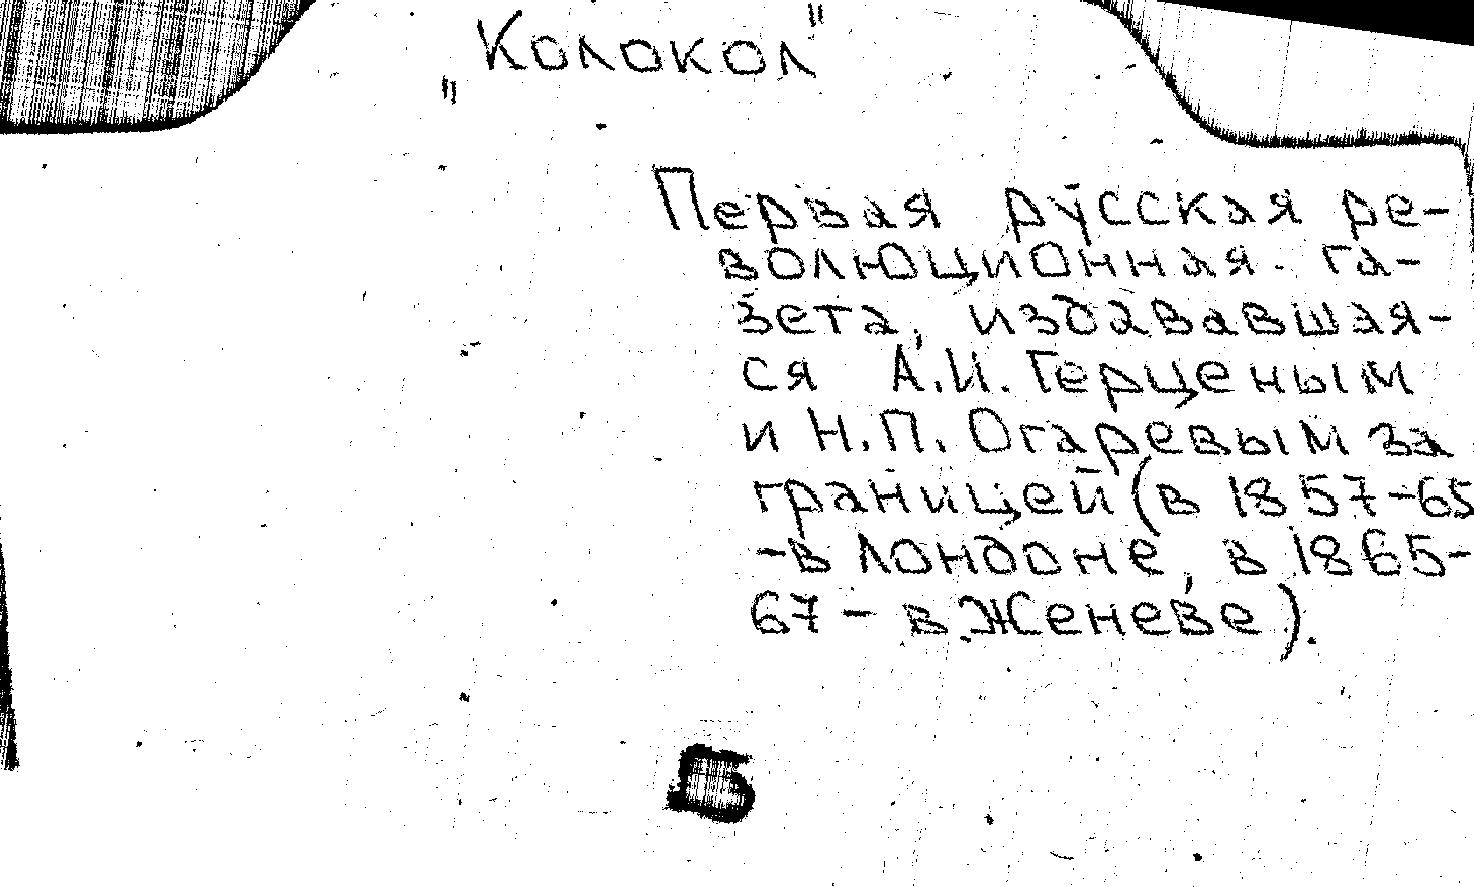 „Колокол"
Первая русская ре-
волюционная га-
зета, издававшая-
ся А.И. Герценым
и Н.П. Огаревым за
границей (в 1857-65
-в Лондоне, в 1865-
67 - в Женеве).
Б